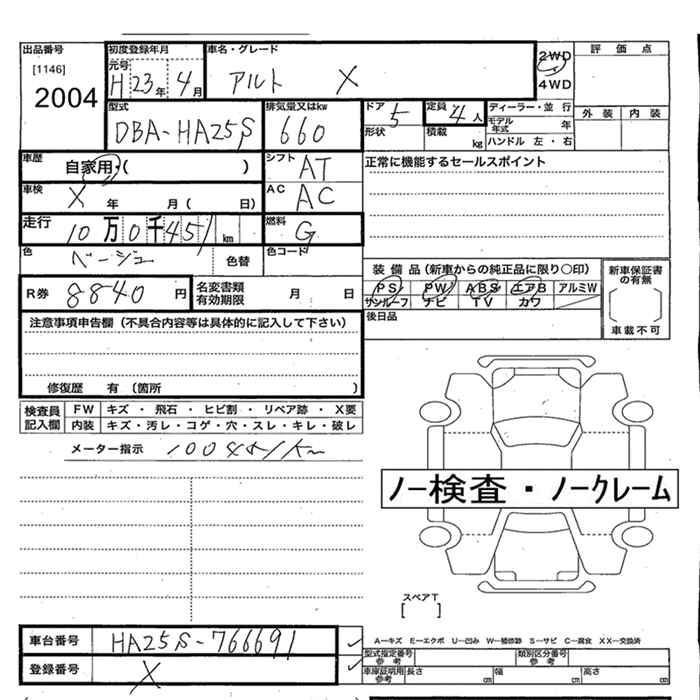 出品番号 初度登録年月 車名・グレード 2WD 評価点
[1146] 元号 4WD
2004 H 23年 4月 アルト X
型式 排気量又はkw ドア 定員 ディーラー・並行 外装 内装
DBA-HA25S 660 5 4人 モデル年式 年
形状 積載 kg ハンドル 左・右
車歴 自家用・( ) シフト AT 正常に機能するセールスポイント
車検 X 年 月 ( 日) AC AC
走行 10万0千451km 燃料 G
色 ベージュ 色替 色コード
装備品(新車からの純正品に限り○印) 新車保証書の有無
R券 8840円 名変書類有効期限 月 日
PS PW ABS エアB アルミW
サンルーフ ナビ TV カワ
後日品 車載不可
注意事項申告欄(不具合内容等は具体的に記入して下さい)
修復歴 有(箇所 )
検査員記入欄 FW キズ・飛石・ヒビ割・リペア跡・X要
内装 キズ・汚レ・コゲ・穴・スレ・キレ・破レ
メーター指示
ノー検査・ノークレーム
スペアT
[ ]
車台番号 HA25S-766691
A-キズ E-エクボ U-凹み W-補修跡 S-サビ C-腐食 XX-交換済
登録番号 X
型式指定番号 参考 類別区分番号 参考
車庫証明用 参考 長さ cm 幅 cm 高さ cm